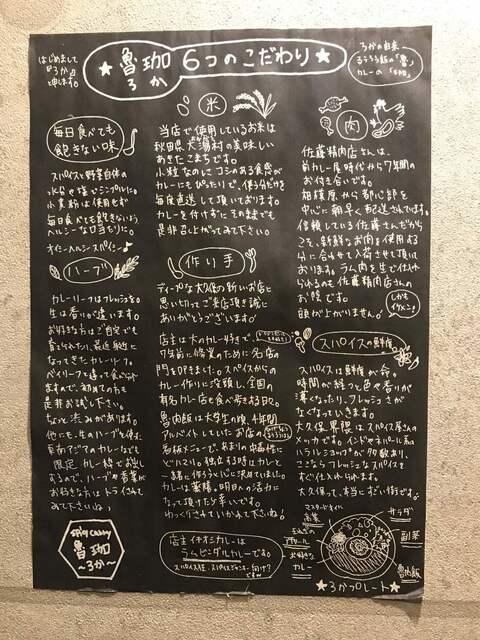 はじめまして
『ろか』と
申します。
★ 魯珈 6つのこだわり ★
ろか
ろかの由来
るうろう飯の「魯」
カレーの「珈」
毎日食べても
飽きない味
スパイスと野菜自体の
水分と塩でシンプルに。
小麦粉は使用せず
毎日食べても飽きないよう
ヘルシーな口当たりに。
オイニーヘルシースパイシー♪
ハーブ
カレーリーフはフレッシュを。
生は香りが違います。
お好きな方はご自宅でも
育てられたり、最近身近に
なってきたカレーリーフ。
ベイリーフと違って食べられ
ますので、初めての方も
是非お試し下さい。
ちょっと渋みがあります。
他にも、生のハーブを使った
東南アジアのカレーなども
限定カレー枠でお出し
するので、ハーブの香菜が
お好きな方はトライされて
みて下さいね♪
Spicy Curry
魯珈
～ろか～
米
当店で使用しているお米は
秋田県大潟村の美味しい
あきたこまちです。
小粒なのにコシのある食感が
カレーにもぴったりで、使う分だけを
毎度直送して頂いております。
カレーを付けずにそのままでも
是非召し上がってみて下さい。
作り手
ディープな大久保の新しいお店に
思い切ってご来店頂き誠に
ありがとうございます。
店主は大のカレー好きで、
7年前に修業のために名店の
門を叩きました。スパイスからの
カレー作りに没頭し、全国の
有名カレー店を食べ歩きる日々。
魯肉飯は大学生の頃、4年間
アルバイトしていたお店の
看板メニューで、あまりの中毒性に
どハマり。独立する時はカレーと
一緒に作ろうと心に決めていました。
カレーは薬膳。明日への活力に
なって頂けたら幸いです。
ゆっくりされていかれて下さいね!
店主イチオシカレーは
ラムビンダルカレーです。
肉
佐藤精肉店さんは、
前カレー屋時代から7年間の
お付き合いです。
相模原から都心部を
中心に朝早く配送されています。
信頼している佐藤さんだから
こそ、新鮮なお肉を使用する
分に合わせて入荷させて頂いて
おります。ラム肉を生で仕入れ
られるのも佐藤精肉店さんの
お陰です。
頭が上がりません。
しかも
イケメン!
スパイスの鮮度
スパイスは鮮度が命。
時間が経つと色や香りが
薄くなったり、フレッシュさが
なくなっていきます。
大久保界隈はスパイス屋さんの
メッカです。インドやネパール系の
ハラルショップが多数あり、
ここならフレッシュなスパイスを
すぐ仕入れられます。
大久保って、本当にすごい街です。
マスタードオイル
青菜
サラダ
玉ねぎの
アチャール
副菜
お好きな
カレー
魯肉飯
★ろかプレート★